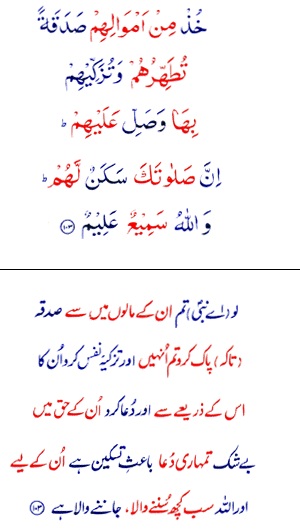 خُذْ مِنْ اَمْوَالِهِمْ صَدَقَةً
تُطَهِّرُهُمْ وَتُزَكِّيْهِمْ
بِهَا وَصَلِّ عَلَيْهِمْ ؕ
اِنَّ صَلٰوتَكَ سَكَنٌ لَّهُمْ ؕ
وَ اللّٰهُ سَمِيْعٌ عَلِيْمٌ ۝۱۰۳
لو (اے نبیؐ) تم ان کے مالوں میں سے صدقہ
(تاکہ) پاک کرو تم اُنہیں اور تزکیۂ نفس کرو اُن کا
اس کے ذریعے سے اور دُعا کرو اُن کے حق میں
بے شک تمہاری دُعا باعثِ تسکین ہے اُن کے لیے
اور اللہ سب کچھ سُننے والا، جاننے والا ہے ۝۱۰۳